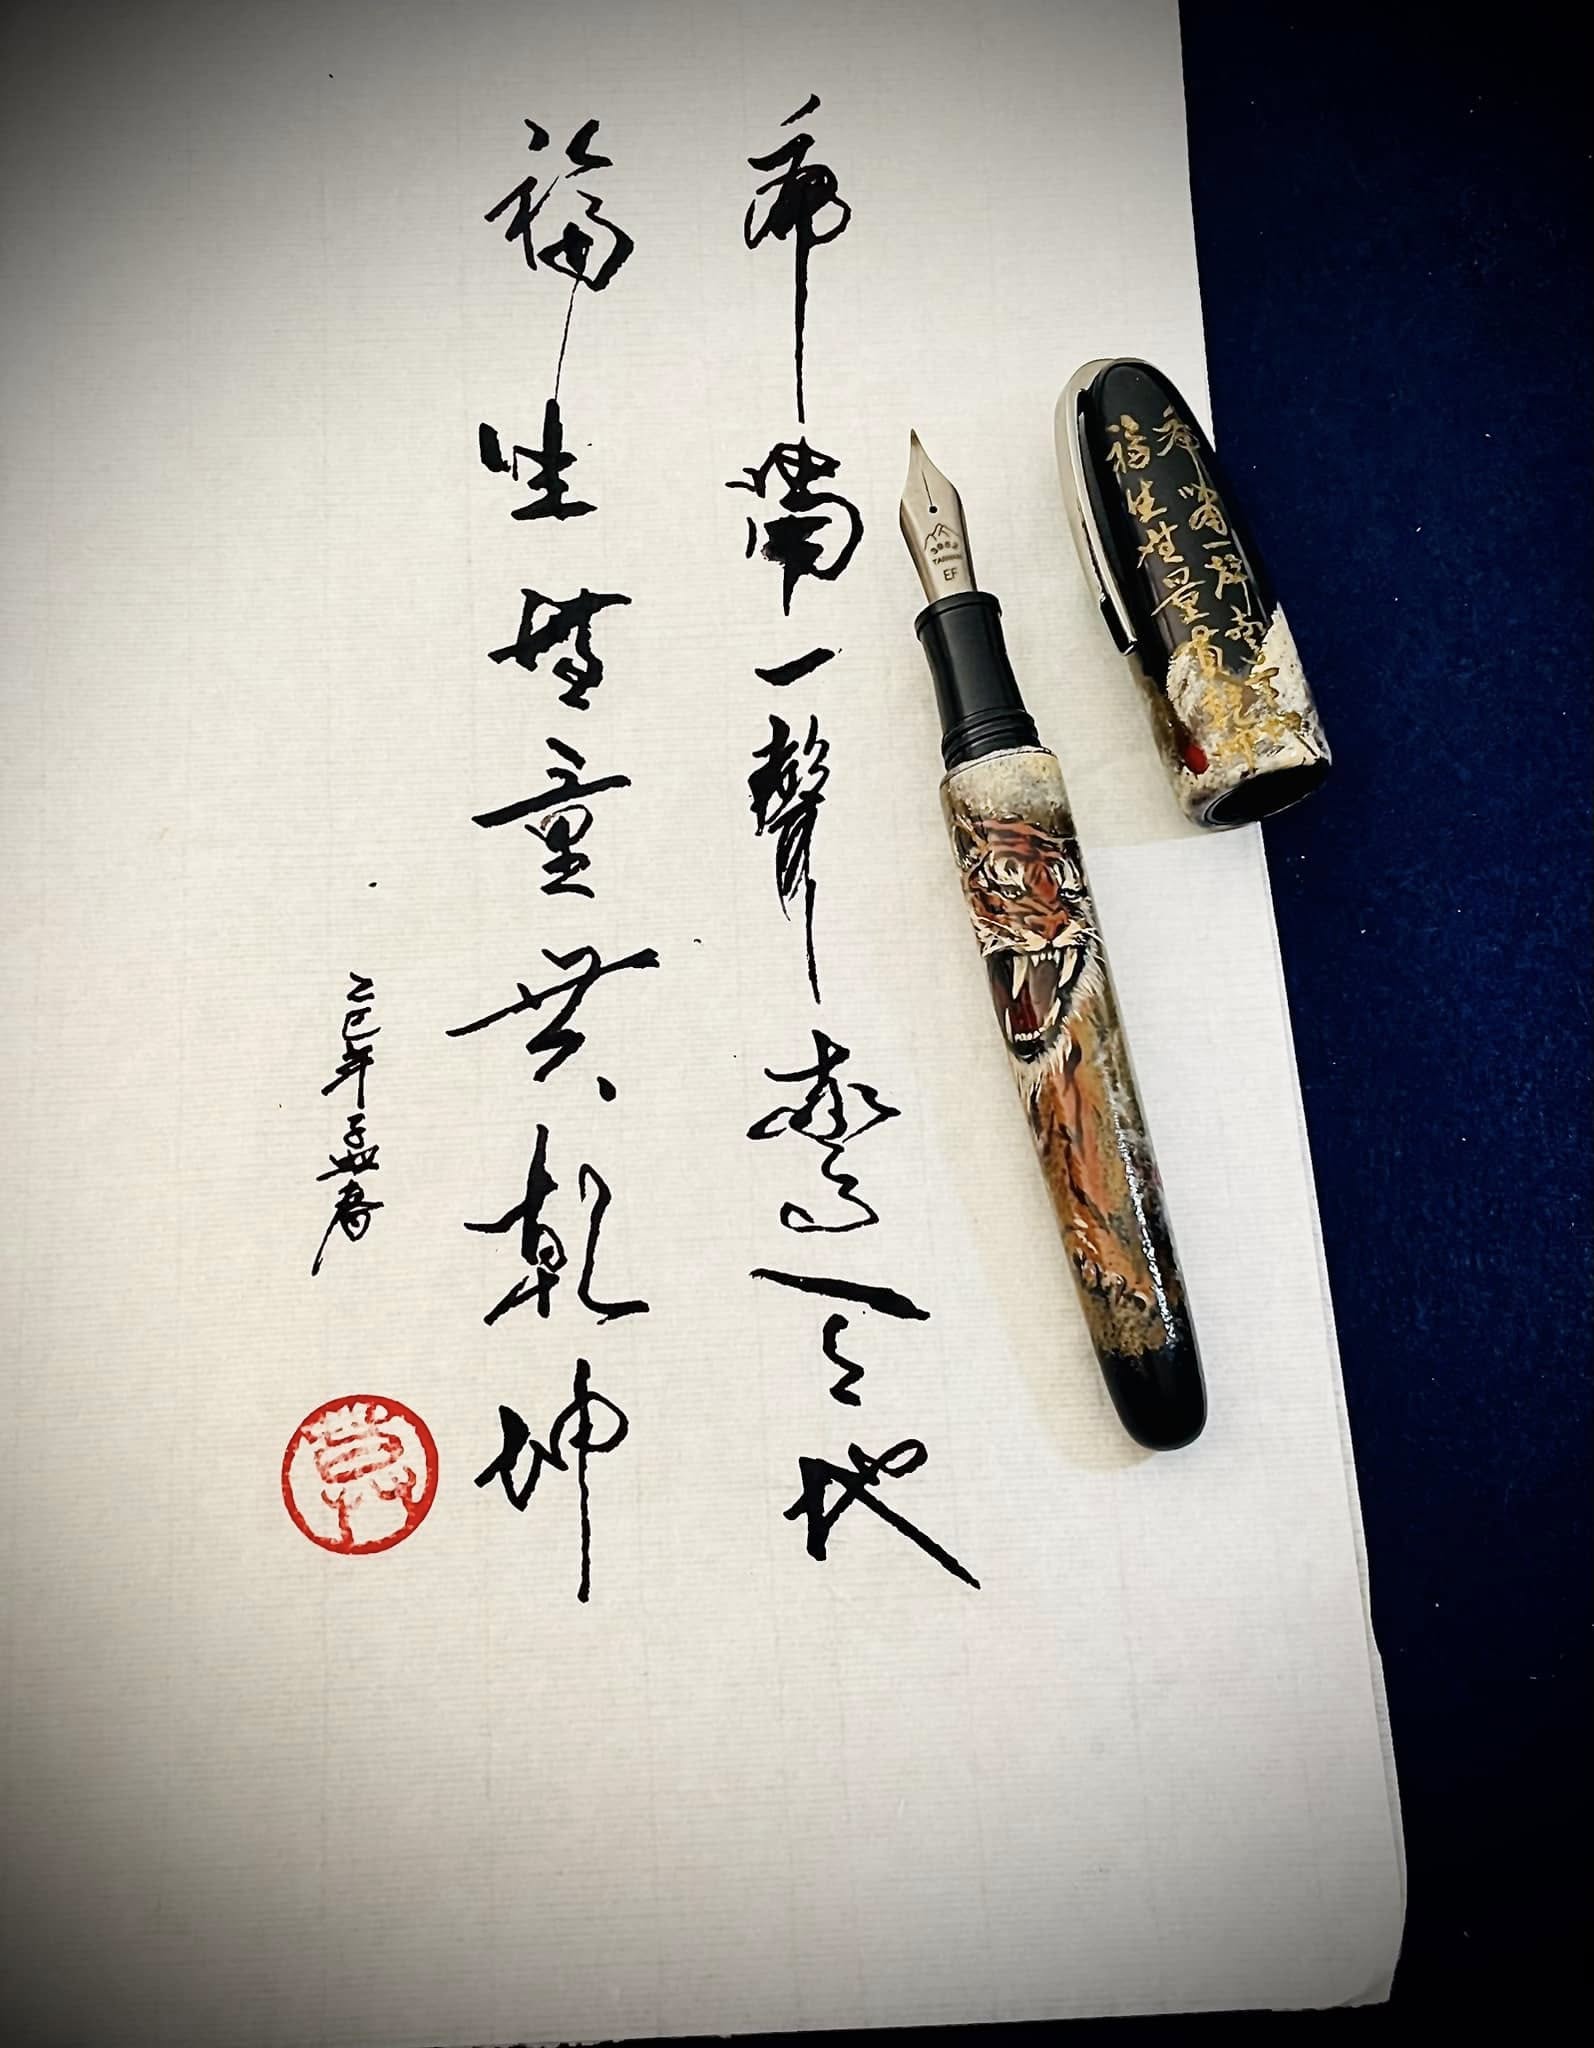 虎嘯一聲驚天地
福生無量貫乾坤
乙巳年孟春
虎嘯一聲驚天地
福生無量貫乾坤
3952
TAIWAN
EF